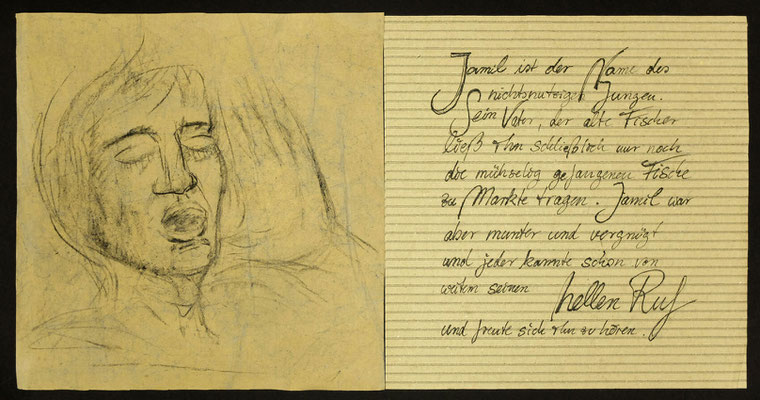 Jamil ist der Name des
nichtsnutzigen Jungen.
Sein Vater, der alte Fischer
ließ ihn schließlich nur noch
die mühselig gefangenen Fische
zu Markte tragen. Jamil war
aber munter und vergnügt
und jeder kannte schon von
weitem seinen hellen Ruf
und freute sich ihn zu hören.